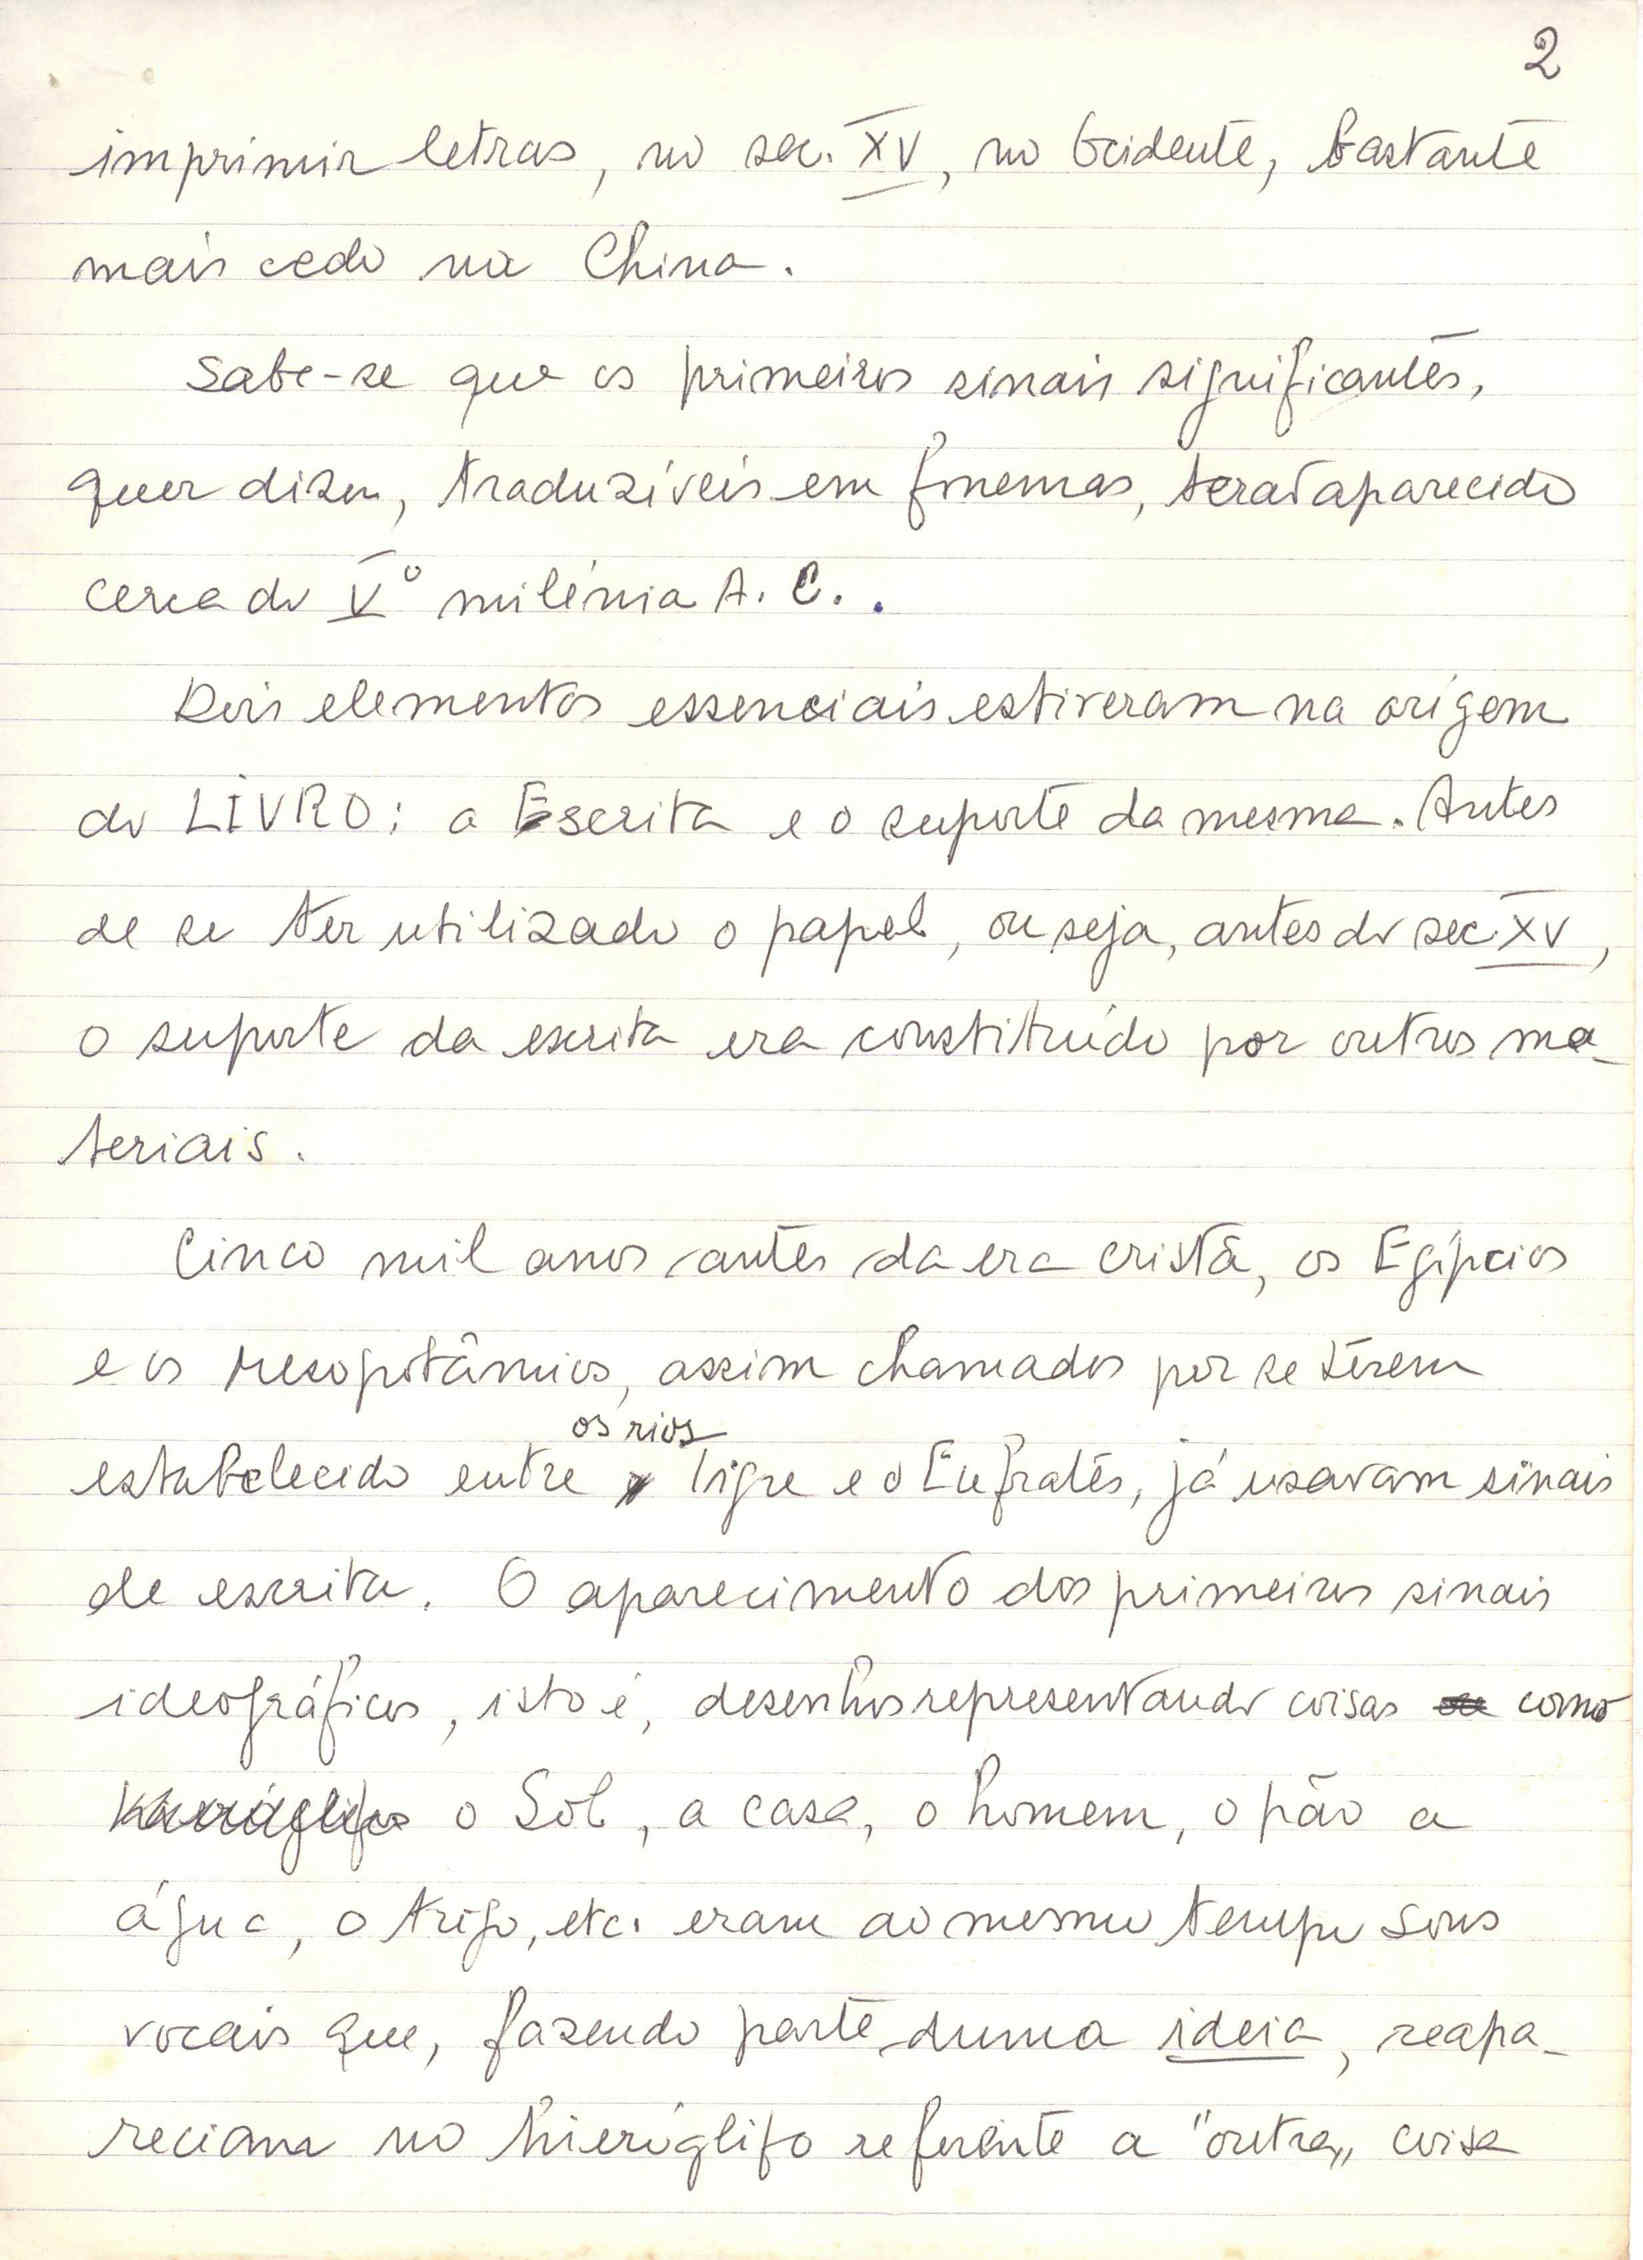 2
imprimir letras, no sec. XV, no Ocidente, bastante
mais cedo na China.
Sabe-se que os primeiros sinais significantes,
quer dizer, traduzíveis em fonemas, terão aparecido
cerca do Vº milénia A. C..
Dois elementos essenciais estiveram na origem
do LIVRO: a Escrita e o suporte da mesma. Antes
de se ter utilizado o papel, ou seja, antes do sec. XV,
o suporte da escrita era constituído por outros ma-
teriais.
Cinco mil anos antes da era cristã, os Egípcios
e os Mesopotâmios, assim chamados por se térem
os rios
estabelecido entre Tigre e o Eufratês, já usavam sinais
de escrita. O aparecimento dos primeiros sinais
ideográficos, isto é, desenhos representando coisas como
o Sol, a casa, o homem, o pão a
água, o trigo, etc. eram ao mesmo tempo sons
vocais que, fazendo parte duma ideia, reapa-
reciam no hieróglifo referente a "outra" coisa